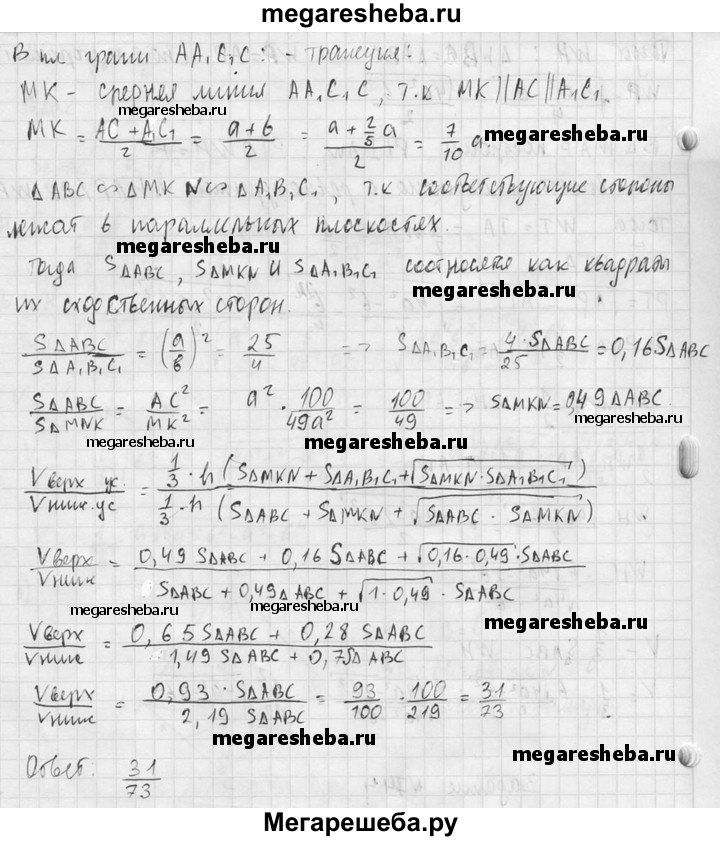 megaresheba.ru
В пл. грани AA₁C₁C: - трапеция:
MK - средняя линия AA₁C₁C, т.к MK||AC||A₁C₁
megaresheba.ru megaresheba.ru
MK = (AC + A₁C₁)/2 = (a + b)/2 = (a + 2/5 a)/2 = 7/10 a
megaresheba.ru
ΔABC ∽ ΔMKN ∽ ΔA₁B₁C₁, т.к соответствующие стороны
лежат в параллельных плоскостях.
megaresheba.ru
Тогда SΔABC, SΔMKN и SΔA₁B₁C₁ соотносятся как квадраты
megaresheba.ru
их сходственных сторон.
SΔABC/SΔA₁B₁C₁ = (a/b)² = 25/4 => SΔA₁B₁C₁ = 4·SΔABC/25 = 0,16SΔABC
megaresheba.ru
SΔABC/SΔMNK = AC²/MK² = a² · 100/49a² = 100/49 => SΔMKN = 0,49ΔABC
megaresheba.ru megaresheba.ru
Vверх ус./Vниж. ус = 1/3 · h (SΔMKN + SΔA₁B₁C₁ + √SΔMKN · SΔA₁B₁C₁)/1/3 · h (SΔABC + SΔMKN + √SΔABC · SΔMKN)
megaresheba.ru
Vверх/Vниж = 0,49 SΔABC + 0,16 SΔABC + √0,16·0,49 · SΔABC/SΔABC + 0,49ΔABC + √1·0,49 · SΔABC
megaresheba.ru megaresheba.ru
Vверх/Vниж = 0,65SΔABC + 0,28 SΔABC/1,49 SΔABC + 0,7SΔABC
megaresheba.ru
Vверх/Vниж = 0,93 · SΔABC/2,19 SΔABC = 93/100 · 100/219 = 31/73.
megaresheba.ru
Ответ. 31/73
megaresheba.ru
Мегарешеба.ру